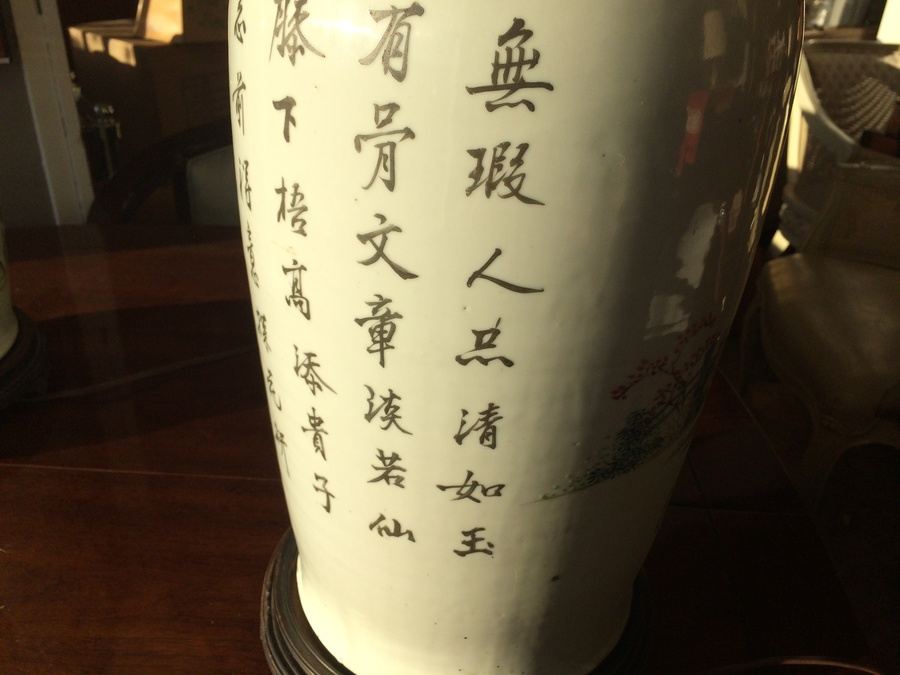 無瑕人品清如玉
有骨文章淡若仙
膝下梧高添貴子
前得意